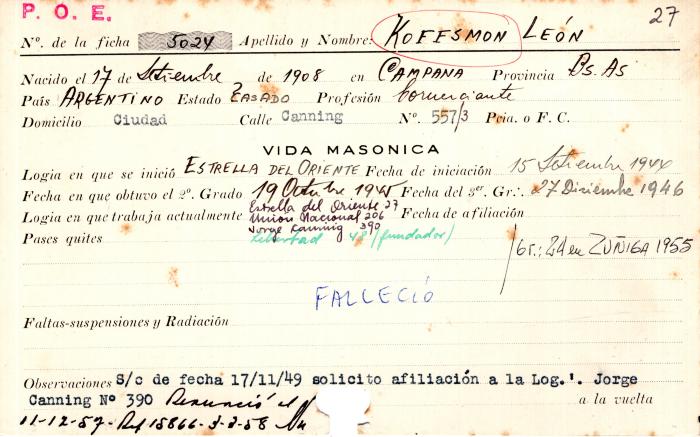 P. O. E.
27
Nº. de la ficha 5024 Apellido y Nombre: KOFFSMON LEÓN
Nacido el 17 de Setiembre de 1908 en CAMPANA Provincia Bs. As
País ARGENTINO Estado CASADO Profesión Comerciante
Domicilio Ciudad Calle Canning Nº. 557/3 Pcia. o F. C.
VIDA MASONICA
Logia en que se inició ESTRELLA DEL ORIENTE Fecha de iniciación 15 Setiembre 1944
Fecha en que obtuvo el 2º. Grado 19 Octubre 1945 Fecha del 3er. Gr.: 27 Diciembre 1946
Logia en que trabaja actualmente Estrella del Oriente 27 Fecha de afiliación
Unión Nacional 206
Jorge Canning 390
Pases quites Libertad 48 (fundador)
Gr.: 2d en ZUÑIGA 1955
FALLECIÓ
Faltas-suspensiones y Radiación
Observaciones S/c de fecha 17/11/49 solicito afiliación a la Log.'. Jorge
Canning Nº 390 Renunció el a la vuelta
11-12-57- Ref 15866-3-2-58